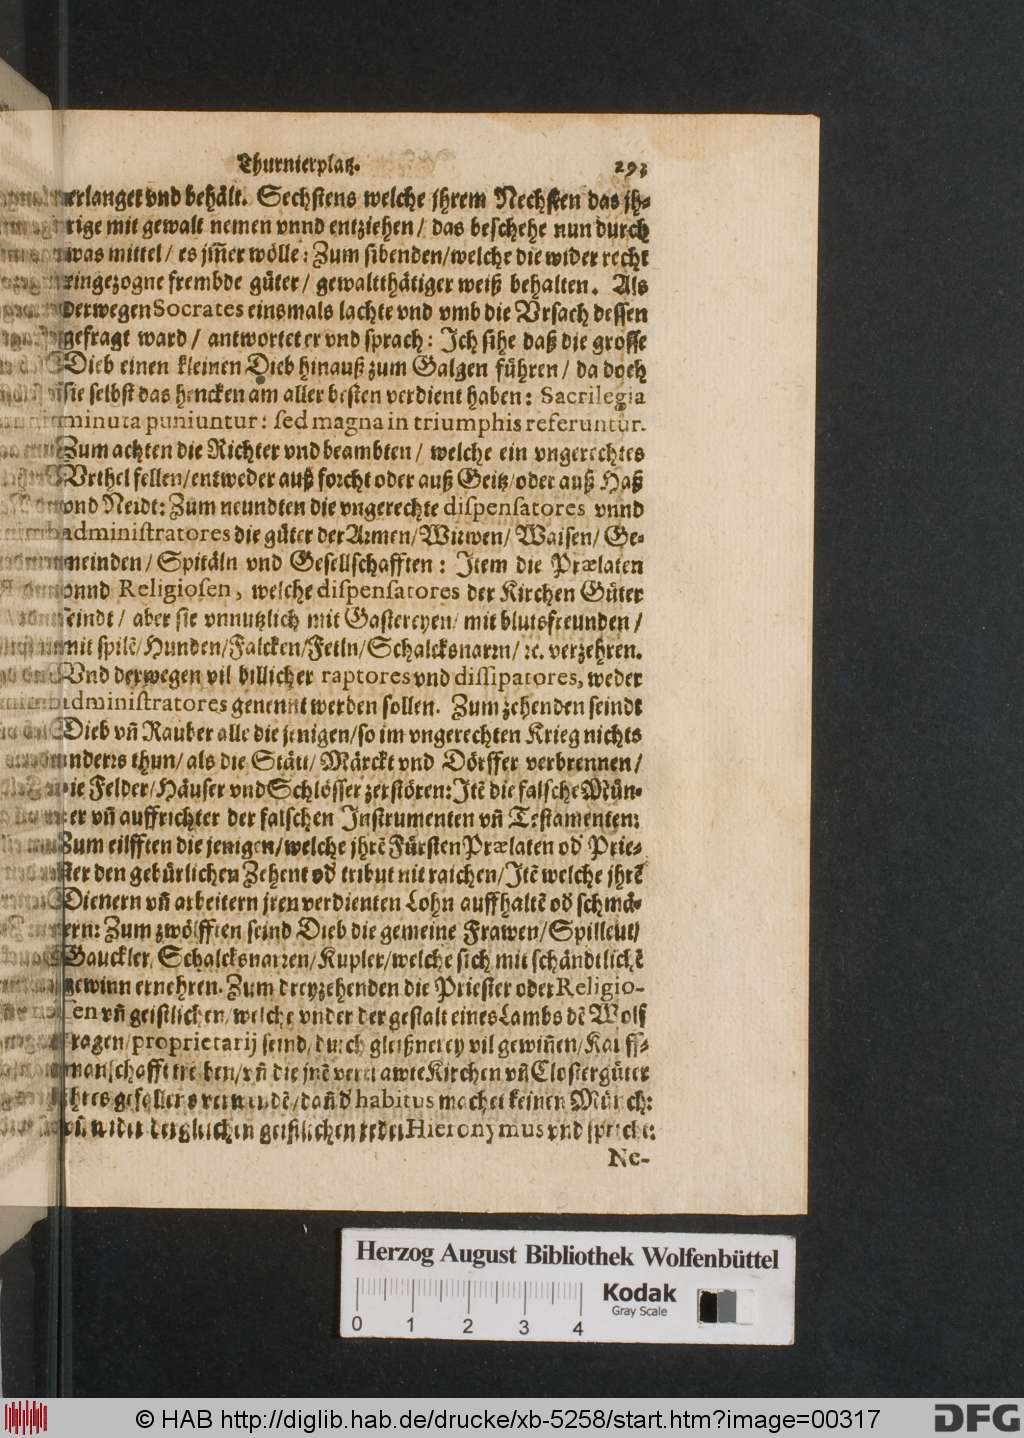 Thurnierplatz. 293
verlanget vnd behält. Sechstens welche jhrem Nechsten das jh-
rige mit gewalt nemen vnnd entziehen / das beschehe nun durch
was mittel / es jm̃er wölle: Zum sibenden / welche die wider recht
eingezogne frembde güter / gewaltthätiger weiß behalten. Als
derwegen Socrates einsmals lachte vnd vmb die Vrsach dessen
gefragt ward / antwortet er vnd sprach: Ich sihe daß die grosse
Dieb einen kleinen Dieb hinauß zum Galgen führen / da doch
sie selbst das hencken am aller besten verdient haben: Sacrilegia
minuta puniuntur: sed magna in triumphis referuntur.
Zum achten die Richter vnd beambten / welche ein vngerechtes
Vrthel fellen / entweder auß forcht oder auß Geitz / oder auß Haß
vnd Neidt: Zum neundten die vngerechte dispensatores vnnd
administratores die güter der Armen / Witwen / Waisen / Ge-
meinden / Spitäln vnd Gesellschafften: Item die Prælaten
vnnd Religiosen, welche dispensatores der Kirchen Güter
seindt / aber sie vnnutzlich mit Gastereyen / mit blutsfreunden /
mit spilẽ / Hunden / Falcken / Fetln / Schalcksnarrn / ꝛc. verzehren.
Vnd derwegen vil billicher raptores vnd dissipatores, weder
administratores genennt werden sollen. Zum zehenden seindt
Dieb vñ Rauber alle die jenigen / so im vngerechten Krieg nichts
anders thun / als die Stätt / Märckt vnd Dörffer verbrennen /
die Felder / Häuser vnd Schlösser zerstören: Itẽ die falsche Mün-
tzer vñ auffrichter der falschen Instrumenten vñ Testamenten:
Zum eilfften die jenigen / welche jhrẽ Fürsten Prælaten od̛ Prie-
ster den gebürlichen Zehent od̛ tribut nit raichen / Itẽ welche jhrẽ
Dienern vñ arbeitern jren verdienten Lohn auffhaltẽ od̛ schmä-
lern: Zum zwölfften seind Dieb die gemeine Frawen / Spilleut /
Gauckler, Schalcksnarren / Kupler / welche sich mit schändtlichẽ
gewinn ernehren. Zum dreyzehenden die Priester oder Religio-
sen vñ geistlichen / welche vnder der gestalt eines Lambs dẽ Wolf
tragen / proprietarij seind / durch gleißnerey vil gewiñen / Kauff-
manschafft treiben / vñ die jnẽ vertrawte Kirchen vñ Clostergüter
jhres gefallens verwendẽ / dañ d̛ habitus machet keinen Münch:
vñ wider dergleichen geistlichen redet Hieronymus vnd spricht:
Ne-
Herzog August Bibliothek Wolfenbüttel
Kodak
Gray Scale
0 1 2 3 4
© HAB http://diglib.hab.de/drucke/xb-5258/start.htm?image=00317
DFG